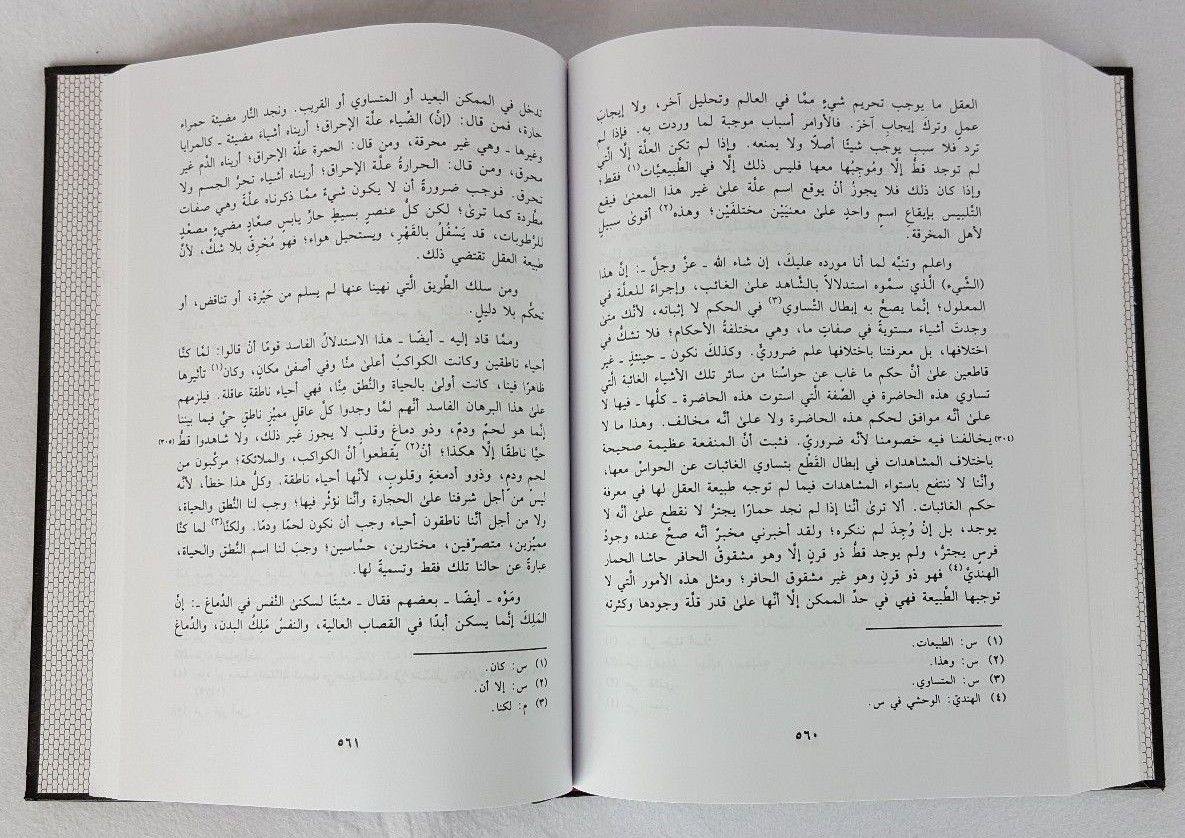 العقل ما يوجب تحريم شيءٍ ممَّا في العالم وتحليل آخر، ولا إيجاب
عملٍ وترك إيجاب آخرَ. فالأوامر أسباب موجبة لما وردت به. فإذا لم
ترد فلا سبب يوجب شيئًا أصلاً ولا يمنعه. وإذا لم تكن العلَّة إلَّا الَّتي
لم توجد قطُّ إلَّا ومُوجِبُها معها فليس ذلك إلَّا في الطَّبيعيَّات(١) فقط؛
وإذا كان ذلك فلا يجوزُ أنْ يوقع اسم علَّة علىٰ غير هذا المعنىٰ فيقع
التَّلبيس بإيقاعِ اسمٍ واحدٍ علىٰ معنيَيْن مختلفَيْن؛ وهذه(٢) أقوىٰ سبيلٍ
لأهل المخرقة.
واعلم وتنبَّه لما أنا مورده عليكَ، إن شاء الله ـ عزَّ وجلَّ ـ: إنَّ هذا
(الشَّيء) الَّذي سمَّوه استدلالاً بالشَّاهد علىٰ الغائب، وإجراءً للعلَّة في
المعلول؛ إنَّما يصحُّ به إبطال التَّساوي(٣) في الحكم لا إثباته، لأنَّك متىٰ
وجدتَ أشياءَ مستويةً في صفاتٍ ما، وهي مختلفةُ الأحكام؛ فلا تشكُّ في
اختلافها، بل معرفتنا باختلافها علم ضروريٌّ. وكذلكَ نكون ـ حينئذٍ ـ غير
قاطعين علىٰ أنَّ حكم ما غاب عن حواسِّنا من سائر تلك الأشياء الغائبة الَّتي
تساوي هذه الحاضرة في الصِّفة الَّتي استوت هذه الحاضرة ـ كلُّها ـ فيها لا
علىٰ أنَّه موافق لحكم هذه الحاضرة ولا علىٰ أنَّه مخالف. وهذا ما لا
(٣٠٤) يخالفنا فيه خصومنا لأنَّه ضروريٌّ. فثبت أنَّ المنفعة عظيمة صحيحة
باختلاف المشاهدات في إبطال القَطْع بتساوي الغائبات عن الحواسِّ معها،
وأنَّنا لا ننتفع باستواء المشاهدات فيما لم توجبه طبيعة العقل لها في معرفة
حكم الغائبات. ألا ترىٰ أنَّنا إذا لم نجد حمارًا يجترُّ لا نقطع علىٰ أنَّه لا
يوجد، بل إنْ وُجِدَ لم ننكره؛ ولقد أخبرني مخبرٌ أنَّه صحَّ عنده وجودُ
فرسٍ يجترُّ، ولم يوجد قطُّ ذو قرنٍ إلَّا وهو مشقوقُ الحافر حاشا الحمار
الهنديّ(٤) فهو ذو قرنٍ وهو غير مشقوق الحافر؛ ومثل هذه الأمور الَّتي لا
توجبها الطَّبيعة فهي في حدِّ الممكن إلَّا أنَّها علىٰ قدر قلَّة وجودها وكثرته
(١) س: الطبيعات.
(٢) س: وهذا.
(٣) س: المتساوي.
(٤) الهنديّ: الوحشي في س.
٥٦٠
تدخل في الممكن البعيد أو المتساوي أو القريب. ونجد النَّار مضيئة حمراء
حارة، فمن قال: (إنّ) الضِّياء علَّة الإحراق؛ أريناه أشياءَ مضيئة ـ كالمرايا
وغيرها ـ وهي غير محرقة، ومن قال: الحمرة علَّة الإحراق؛ أريناه الدَّم غير
محرق، ومن قال: الحرارةُ علَّة الإحراق؛ أريناه أشياء تحرُّ الجسم ولا
تحرق. فوجب ضرورةً أن لا يكون شيءٌ ممَّا ذكرناه علَّة وهي صفات
مطَّردة كما ترىٰ؛ لكن كلُّ عنصرٍ بسيطٍ حارٍّ يابسٍ صعَّادٍ مضيءٍ مصعّدٍ
للرُّطوبات، قد يَسْفُلُ بالقَهْرِ، ويستحيل هواء؛ فهو مُحْرِقٌ بلا شكٍّ، لأنَّ
طبيعة العقل تقتضي ذلك.
ومن سلك الطَّريق الَّتي نهينا عنها لم يسلم من حَيْرة، أو تناقض، أو
تحكُّم بلا دليلٍ.
وممَّا قاد إليه ـ أيضًا ـ هذا الاستدلالُ الفاسد قومًا أنْ قالوا: لمَّا كنَّا
أحياء ناطقين وكانت الكواكبُ أعلىٰ منَّا وفي أصفىٰ مكانٍ، وكان(١) تأثيرها
ظاهرًا فينا، كانت أولىٰ بالحياة والنُّطق مِنَّا، فهي أحياء ناطقة عاقلة. فيلزمهم
علىٰ هذا البرهان الفاسد أنَّهم لمَّا وجدوا كلَّ عاقلٍ مميِّزٍ ناطقٍ حيٍّ فيما بيننا
إنَّما هو لحمٌ ودمٌ، وذو دماغٍ وقلبٍ لا يجوز غير ذلك، ولا شاهدوا قطُّ (٣٠٥)
حيًّا ناطقًا إلَّا هكذا؛ أنْ(٢) يقطعوا أنَّ الكواكب، والملائكة؛ مركَّبون من
لحم ودمٍ، وذوو أدمغةٍ وقلوبٍ، لأنَّها أحياء ناطقة. وكلُّ هذا خطأ، لأنَّه
ليس من أجل شرفنا علىٰ الحجارة وأنَّنا نؤثِّر فيها؛ وجب لنا النُّطق والحياة،
ولا من أجل أنَّنا ناطقون أحياء وجب أن نكون لحمًا ودمًا. ولكنَّا(٣) لما كنَّا
مميِّزين، متصرِّفين، مختارين، حسَّاسين؛ وجبَ لنا اسم النُّطق والحياة،
عبارةً عن حالنا تلك فقط وتسميةً لها.
ومَوَّه ـ أيضًا ـ بعضهم فقال ـ مثبتًا لسكنىٰ النَّفس في الدِّماغ ـ: إنَّ
المَلِكَ إنَّما يسكن أبدًا في القصاب العالية، والنفسُ مَلِكُ البدن، والدِّماغ
(١) س: كان.
(٢) س: إلا أن.
(٣) م: لكنا.
٥٦١